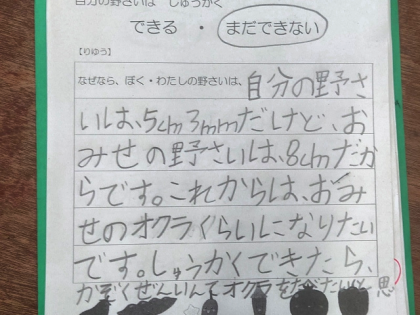 自分の野さいは しゅうかく
できる ・ まだできない
【りゆう】
なぜなら、ぼく・わたしの野さいは、自分の野さ
いは、5cm3mmだけど、お
みせの野さいは、8cmだか
らです。これからは、おみ
せのオクラくらいになりたい
です。しゅうかくできたら、
かぞくぜんいんでオクラをたべたいと思